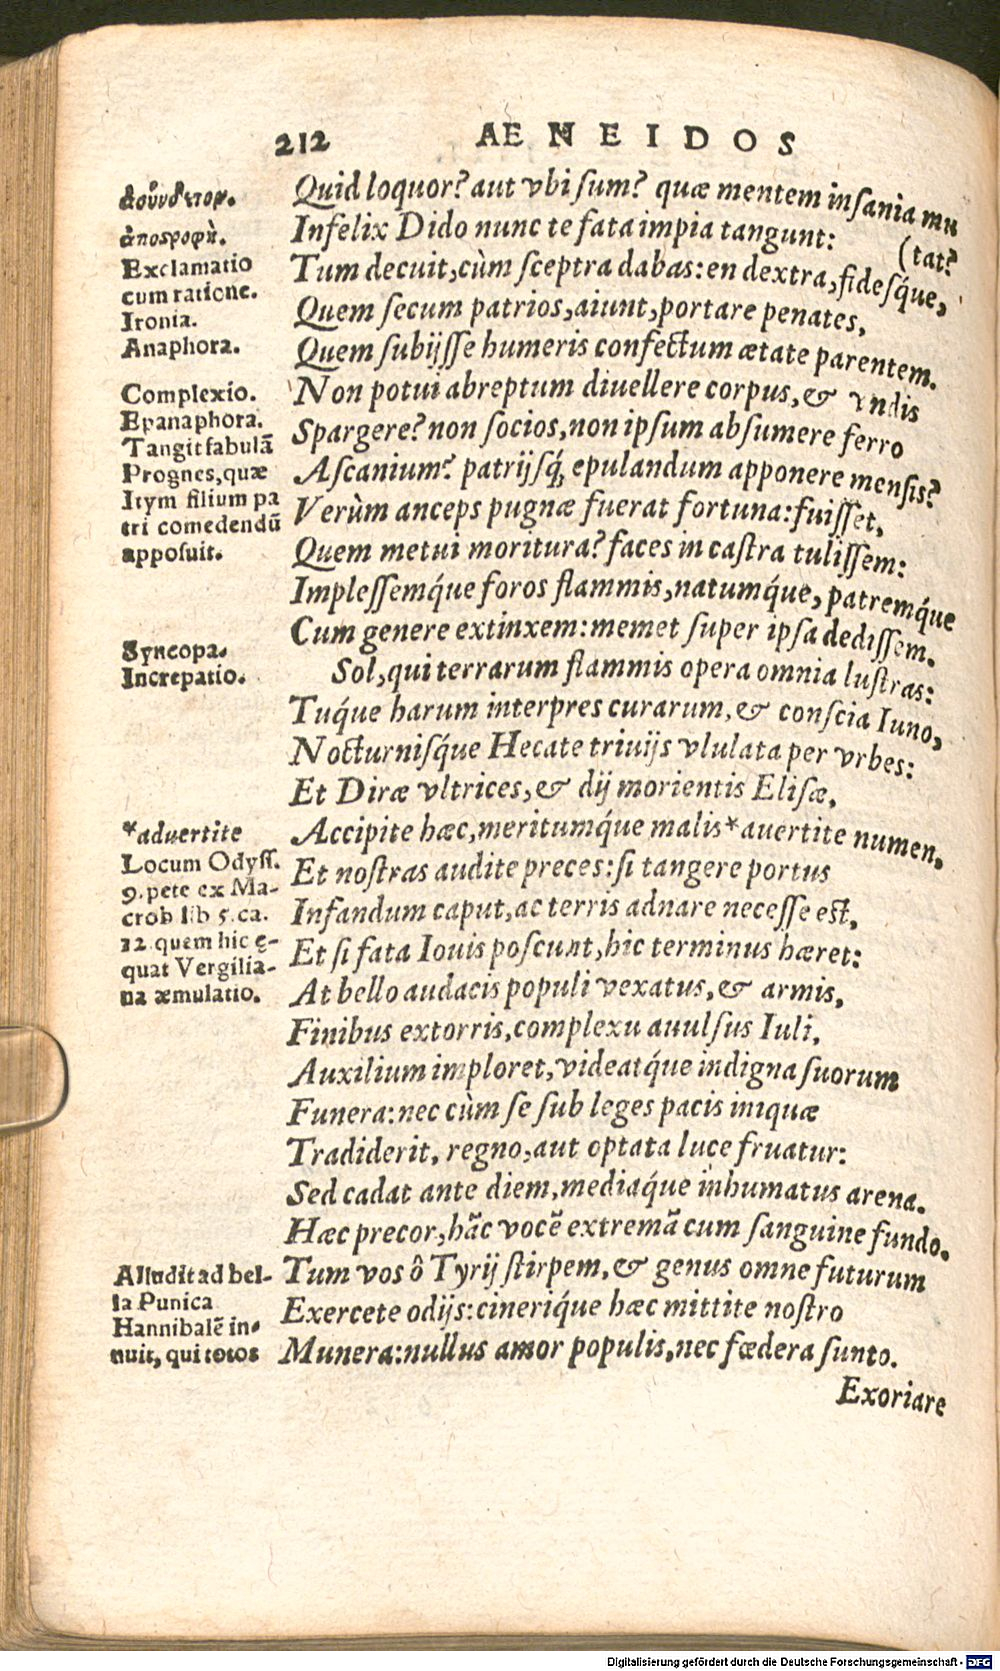 212 AENEIDOS
ἀσύνδετον. Quid loquor? aut vbi sum? quæ mentem insania mu
ἀποστροφὴ. Infelix Dido nunc te fata impia tangunt: (tat?
Exclamatio Tum decuit, cùm sceptra dabas: en dextra, fidesq́ue,
cum ratione.
Ironia. Quem secum patrios, aiunt, portare penates,
Anaphora. Quem subijsse humeris confectum ætate parentem.
Complexio. Non potui abreptum diuellere corpus, & vndis
Epanaphora. Spargere? non socios, non ipsum absumere ferro
Tangit fabulā
Prognes, quæ Ascanium? patrijsq́; epulandum apponere mensis?
Itym filium pa Verùm anceps pugnæ fuerat fortuna: fuisset,
tri comedendū
apposuit. Quem metui moritura? faces in castra tulissem:
Implessemq́ue foros flammis, natumq́ue, patremq́ue
Cum genere extinxem: memet super ipsa dedissem.
Syncopa.
Increpatio. Sol, qui terrarum flammis opera omnia lustras:
Tuq́ue harum interpres curarum, & conscia Iuno,
Nocturnisq́ue Hecate triuijs vlulata per vrbes:
Et Diræ vltrices, & dij morientis Elisæ,
*aduertite Accipite hæc, meritumq́ue malis *auertite numen,
Locum Odyss. Et nostras audite preces: si tangere portus
9. pete ex Ma-
crob lib 5. ca. Infandum caput, ac terris adnare necesse est,
12. quem hic ę- Et si fata Iouis poscunt, hic terminus hæret:
quat Vergilia-
na æmulatio. At bello audacis populi vexatus, & armis,
Finibus extorris, complexu auulsus Iuli,
Auxilium imploret, videatq́ue indigna suorum
Funera: nec cùm se sub leges pacis iniquæ
Tradiderit, regno, aut optata luce fruatur:
Sed cadat ante diem, mediaq́ue inhumatus arena.
Hæc precor, hāc vocē extremā cum sanguine fundo.
Alludit ad bel- Tum vos ô Tyrij stirpem, & genus omne futurum
la Punica Exercete odijs: cineriq́ue hæc mittite nostro
Hannibalē in-
nuit, qui totos Munera: nullus amor populis, nec fœdera sunto.
Exoriare
Digitalisierung gefördert durch die Deutsche Forschungsgemeinschaft - DFG